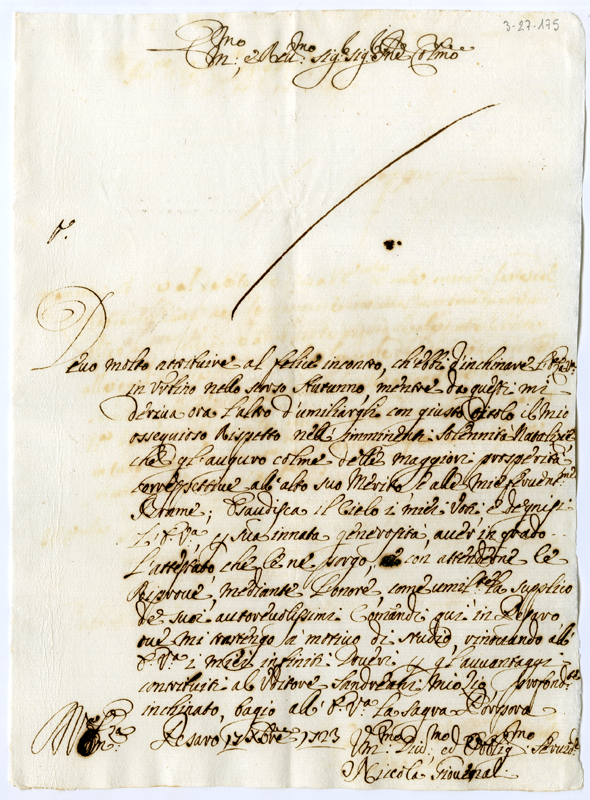 3-27-175
Em.mo e Rev.mo Sig.r Sig.r P.ne Colmo
Devo molto attribuire al felice incontro, ch'ebbi d'inchinare l'E. V.ra
in Urbino nello scorso Autunno, mentre da questi mi
deriva ora l'altro d'umiliargli con giusto titolo il mio
ossequioso Rispetto nell'imminenti Solennità Natalizie
che gl'auguro colme delle maggiori prosperità
corrispettive all'alto suo Merito, e alle mie ferventme
Brame; Esaudisca il Cielo i miei voti, e degnisi
L'E. V.ra p sua innata generosità, aver in grado
L'attestato, che le ne porgo, con attenderne le
Riprove, mediante l'onore, come umilte la supplico
de suoi autorevolissimi Comandi qui in Pesaro
ove mi trattengo a motivo di studio, rinovando all'
E. V.ra i miei infiniti Doveri p gl'avvantaggi
contribuiti al Uditore Sandreani mio Zio, e profondte
inchinato, bagio all' E. V.ra la Sagra Porpora
Pesaro 17 Xbre 1723
Um.mo Div.mo ed Obblig.mo Servid.e
Nicola Giovenali